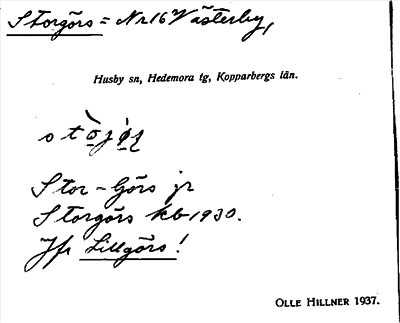 Storgörs = Nr 16 Västerby,
Husby sn, Hedemora tg, Kopparbergs län.
Stor-Görs jr
Storgörs kb 1930.
Jfr Lillgörs!
OLLE HILLNER 1937.